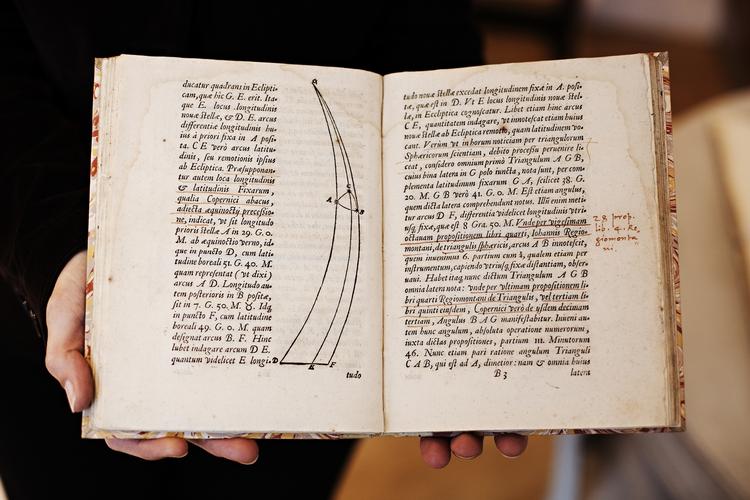 ducatur quadrans in Ecliptica
cam, quæ hic G. E. erit. Ita-
que E. locus longitudinis
nouæ stellæ, & D. E. arcus
differentiæ longitudinis hu-
ius à priori fixa in A posi-
ta. C E verò arcus latitu-
dinis, seu remotionis ipsius
ab Ecliptica. Præsupponan-
tur autem loca longitudinis
& latitudinis Fixarum,
qualia Copernici abacus,
adiecta æquinoctij præcessio-
ne, indicat, vt sit longitudo
prioris stellæ A in 29. G. 0.
M. ab æquinoctio verno, id-
que in puncto D, cum lati-
tudine boreali 51. G. 40. M.
quam repræsentat (vt dixi)
arcus A D. Longitudo au-
tem posterioris in B positæ,
sit in 7. G. 50. M. ♉. Idq;
in puncto F, cum latitudine
boreali 49. G. 0. M. quam
designat arcus B. F. Hinc
lubet indagare arcum D E.
quantum videlicet E longi-
tudo
G
A
C
B
D
E
F
tudo nouæ stellæ excedat longitudinem fixæ in A. posi-
tæ, quæ est in D. Vt E locus longitudinis nouæ stel-
læ, in Ecliptica cognoscatur. Libet etiam hinc arcus
C E, quantitatem indagare, vt innotescat etiam huius
stellæ ab Ecliptica remotio, quam latitudinem vo-
cant. Verùm vt in horum noticiam per triangulorum
Sphæricorum scientiam, debito processu peruenire li-
ceat, considero omnium primò Triangulum A G B,
cuius bina latera in G polo iuncta, nota sunt, per com-
plementa latitudinum fixarum G A, scilicet 38. G.
20. M. G B verò 41. G. 0. M. Est etiam angulus,
quem dicta latera comprehendunt notus. Illi enim meti-
tur arcus D F, differentia videlicet longitudinis vtri-
usq; fixæ, quæ est 8 Gra. 50. M. Vnde per vigesimam
octauam propositionem libri quarti, Iohannis Regio-
montani, de triangulis sphæricis, arcus A B innotescit,
quem inuenimus 6. partium cum ½, qualem etiam per
instrumentum, capiendo vtriusq; fixæ distantiam, obser-
uaui. Habet itaq; nunc dictum Triangulum A G B
omnia latera nota: vnde per vltimam propositionem li-
bri quarti Regiomontani de Triangulis, vel tertiam li-
bri quinti eiusdem, Copernici verò de ijsdem decimam
tertiam, Angulus B A G manifestabitur. Inueni au-
tem hunc angulum, absoluta operatione numerorum,
iuxta dictas propositiones, partium 111. Minutorum
46. Nunc etiam pari ratione angulum Trianguli
C A B, qui est ad A, dimetior: nam & omnia huius
B 3 latera
28 prop.
lib. 4. Re
giomonta
ni.